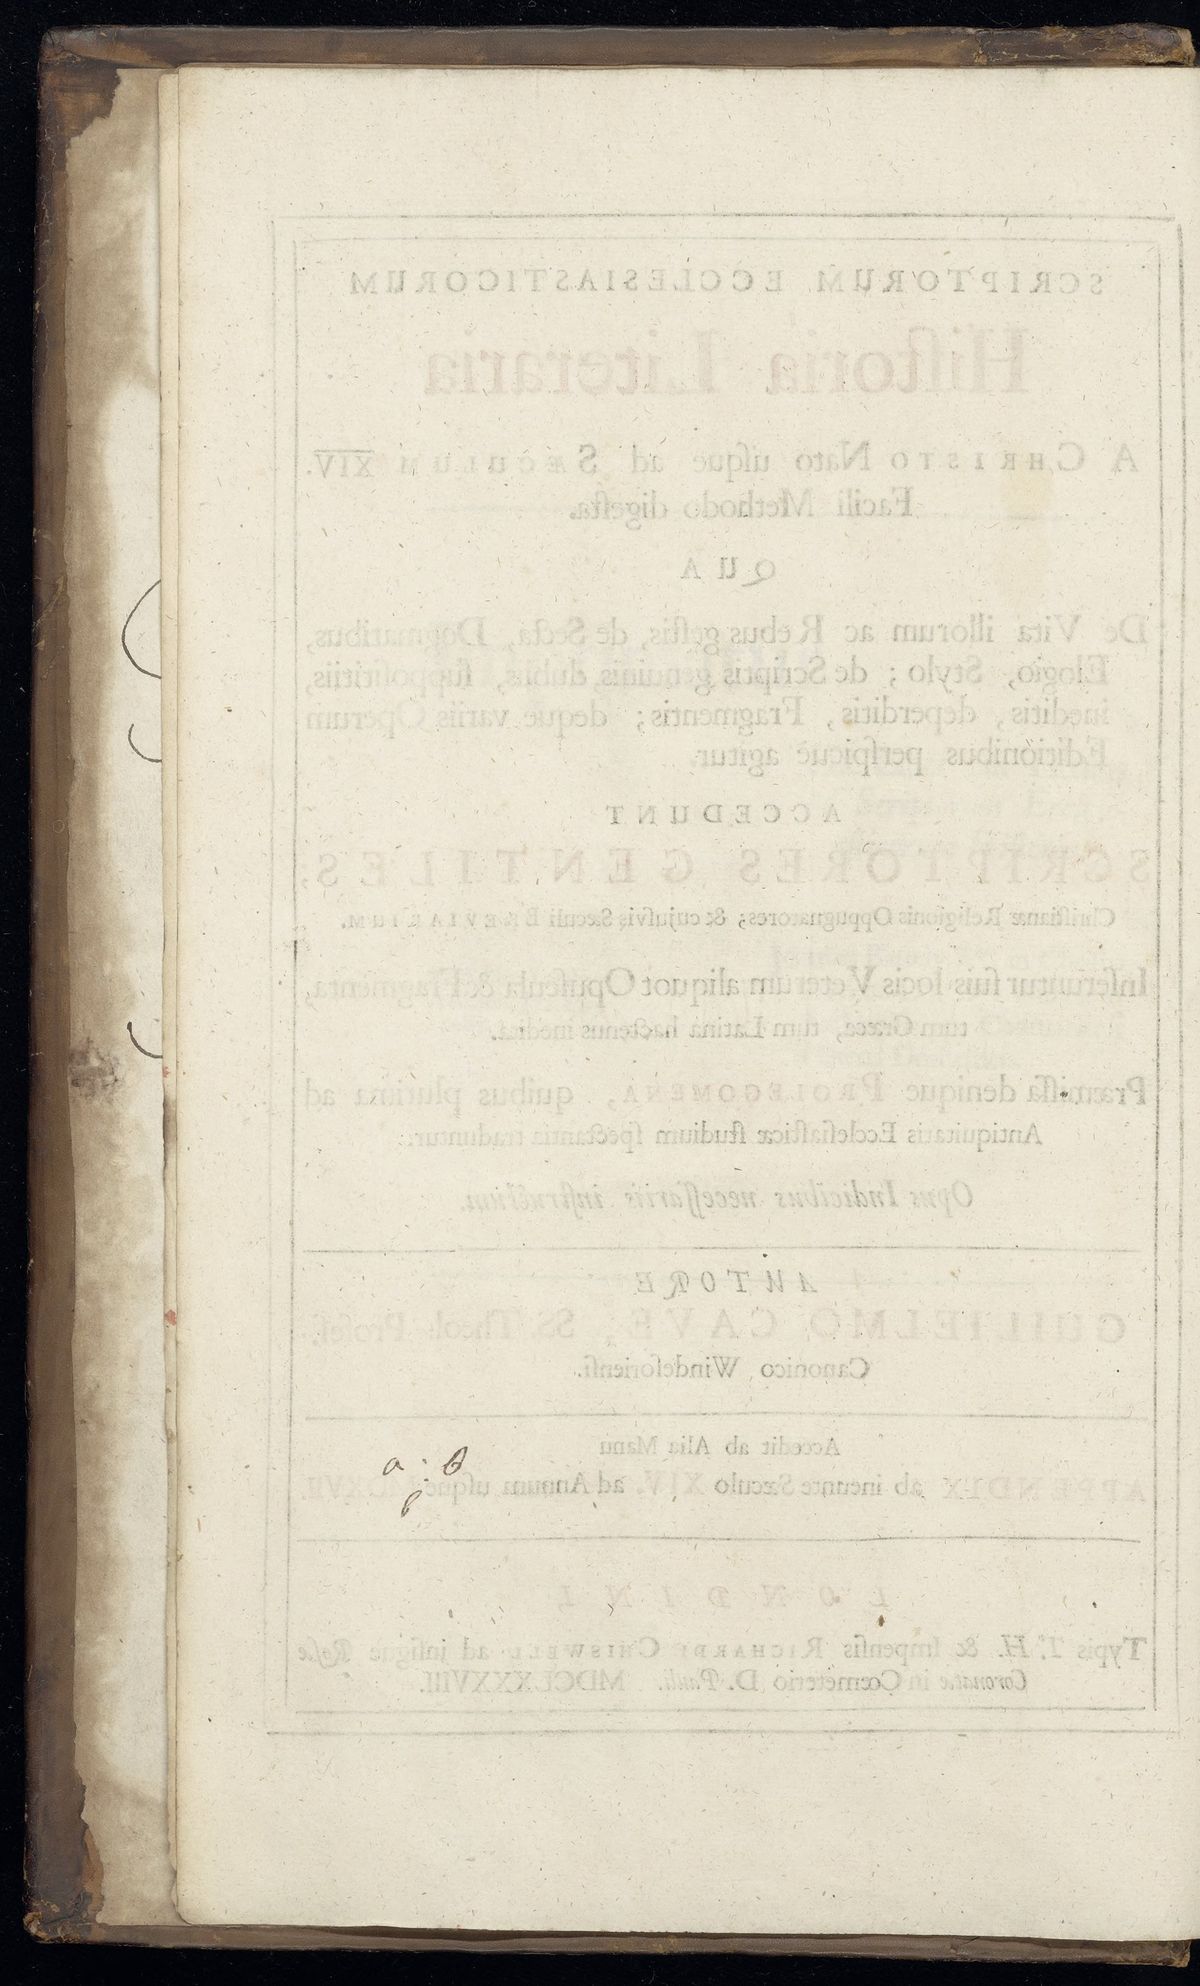 SCRIPTORUM ECCLESIASTICORUM
Hiſtoria Literaria
A CHRISTO Nato uſque ad SÆCULUM XIV.
Facili Methodo digeſta.
QUA
De Vita illorum ac Rebus geſtis, de Secta, Dogmatibus,
Elogio, Stylo; de Scriptis genuinis, dubiis, ſuppoſititiis,
ineditis, deperditis, Fragmentis; deque variis Operum
Editionibus perſpicuè agitur.
ACCEDUNT
SCRIPTORES GENTILES,
Chriſtianæ Religionis Oppugnatores; & cujuſvis Sæculi BREVIARIUM.
Inſeruntur ſuis locis Veterum aliquot Opuſcula & Fragmenta,
tum Græca, tum Latina hactenus inedita.
Præmiſſa denique PROLEGOMENA, quibus plurima ad
Antiquitatis Eccleſiaſticæ ſtudium ſpectantia traduntur.
Opus Indicibus neceſſariis inſtructum.
AUTORE
GUILIELMO CAVE, SS. Theol. Profeſ.
Canonico Windeſorienſi.
Accedit ab Alia Manu
APPENDIX ab ineunte Sæculo XIV. ad Annum uſque MDXVII.
a : b
LONDINI,
Typis T. H. & Impenſis RICHARDI CHISWELL ad inſigne Roſæ
Coronatæ in Cœmeterio D. Pauli. MDCLXXXVIII.